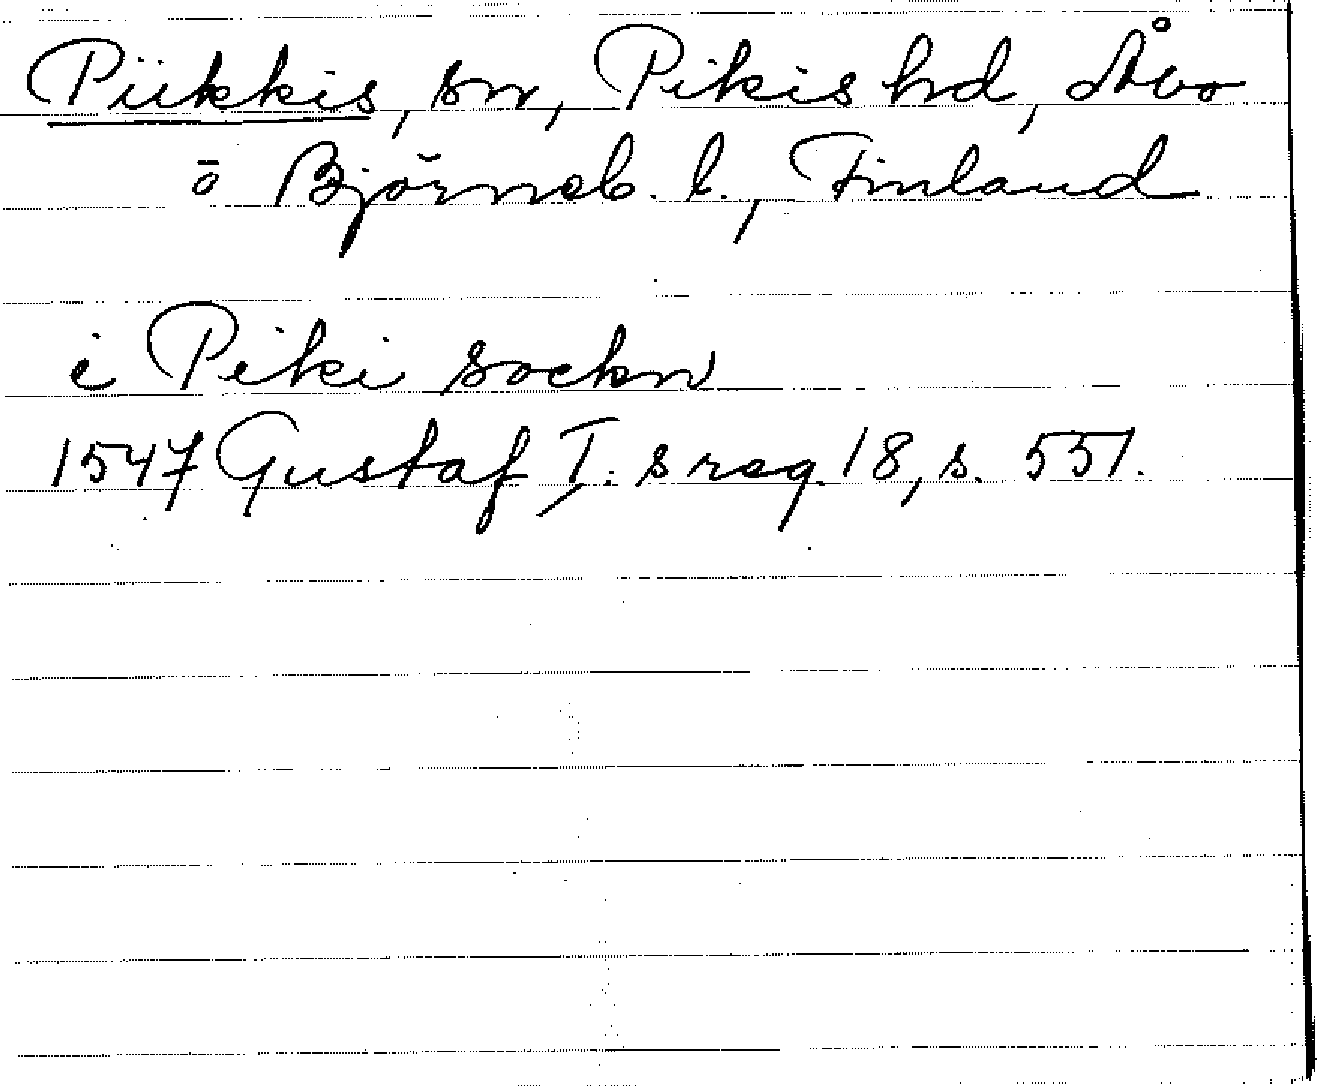 Piikkis, sn, Pikis hd, Åbo
o Björneb. l., Finland
i Piki sockn
1547 Gustaf I:s reg. 18, s. 551.